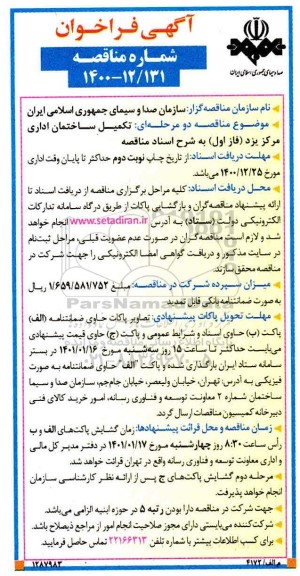 آگهی فراخوان
شماره مناقصه
۱۴۰۰-۱۲/۱۳۱
صدا و سیمای جمهوری اسلامی ایران
نام سازمان مناقصه‌گزار: سازمان صدا و سیمای جمهوری اسلامی ایران
موضوع مناقصه دو مرحله‌ای: تکمیل ساختمان اداری
مرکز یزد (فاز اول) به شرح اسناد مناقصه
مهلت دریافت اسناد: از تاریخ چاپ نوبت دوم حداکثر تا پایان وقت اداری
مورخ ۱۴۰۰/۱۲/۲۵ می‌باشد.
محل دریافت اسناد: کلیه مراحل برگزاری مناقصه از دریافت اسناد تا
ارائه پیشنهاد مناقصه‌گران و بازگشایی پاکات از طریق درگاه سامانه تدارکات
الکترونیکی دولت (ستاد) به آدرس www.setadiran.ir انجام خواهد
شد و لازم است مناقصه‌گران در صورت عدم عضویت قبلی، مراحل ثبت‌نام
در سایت مذکور و دریافت گواهی امضا الکترونیکی را جهت شرکت در
مناقصه محقق سازند.
میزان سپرده شرکت در مناقصه: مبلغ ۱/۶۵۹/۵۸۱/۷۵۲ ریال
به صورت ضمانتنامه بانکی قابل تمدید
مهلت تحویل پاکات پیشنهادی: تصاویر پاکات حاوی ضمانتنامه (الف)
پاکت (ب) حاوی اسناد و شرایط عمومی و پاکت (ج) حاوی قیمت پیشنهادی
می‌بایست حداکثر تا ساعت ۱۵ روز سه‌شنبه مورخ ۱۴۰۱/۰۱/۱۶ در بستر
سامانه ستاد ایران بارگذاری شده و پاکت "الف" حاوی ضمانتنامه به صورت
فیزیکی به آدرس: تهران، خیابان ولیعصر، خیابان جام‌جم، سازمان صدا و سیما
ساختمان شماره ۲ معاونت توسعه و فناوری رسانه، امور خرید کالای فنی
دبیرخانه کمیسیون مناقصات ارسال گردد.
زمان مناقصه و محل قرائت پیشنهادها: زمان گشایش پاکت‌های الف و ب
رأس ساعت ۸:۳۰ روز چهارشنبه مورخ ۱۴۰۱/۰۱/۱۷ در دفتر مدیر کل مالی
و اداری معاونت توسعه و فناوری رسانه واقع در تهران قرائت خواهد شد.
مرحله دوم گشایش پاکت‌های ج پس از ارائه نظر کارشناسی سازمان
انجام خواهد پذیرفت.
جهت شرکت در مناقصه دارا بودن رتبه ۵ در حوزه ابنیه الزامی می‌باشد.
شرکت‌کننده می‌بایستی دارای مجوز صلاحیت انجام امور از مراجع ذیصلاح باشد.
برای کسب اطلاعات بیشتر با شماره تلفن ۲۲۱۶۶۳۱۳ تماس حاصل فرمایید.
م الف/۴۱۷۲
۱۲۸۷۹۸۳